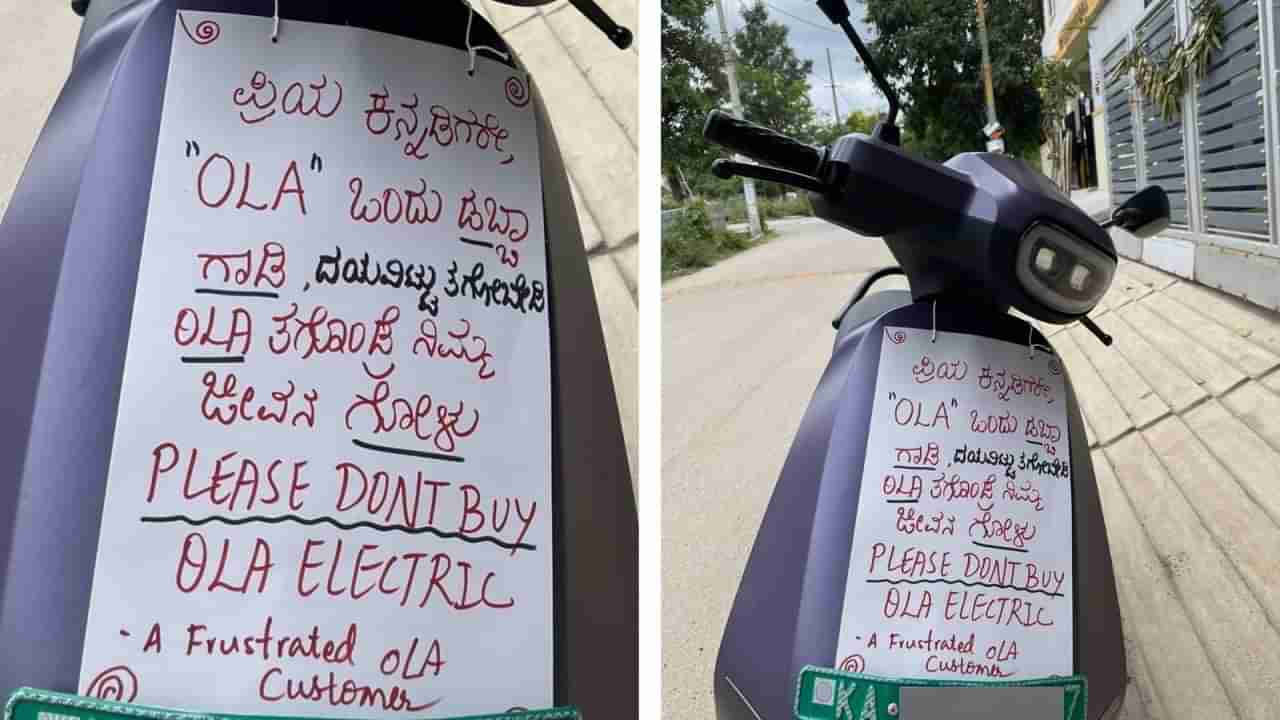 ಪ್ರಿಯ ಕನ್ನಡಿಗರೇ,
"OLA" ಒಂದು ಡಬ್ಬಾ
ಗಾಡಿ, ದಯವಿಟ್ಟು ತಗೋಬೇಡಿ
OLA ತಗೊಂಡ್ರೆ ನಿಮ್ಮ
ಜೀವನ ಗೋಳು
PLEASE DONT BUY
OLA ELECTRIC
- A Frustrated OLA
Customer
ಪ್ರಿಯ ಕನ್ನಡಿಗರೇ,
"OLA" ಒಂದು ಡಬ್ಬಾ
ಗಾಡಿ, ದಯವಿಟ್ಟು ತಗೋಬೇಡಿ
OLA ತಗೊಂಡ್ರೆ ನಿಮ್ಮ
ಜೀವನ ಗೋಳು
PLEASE DONT BUY
OLA ELECTRIC
- A Frustrated OLA
Customer
KA 7